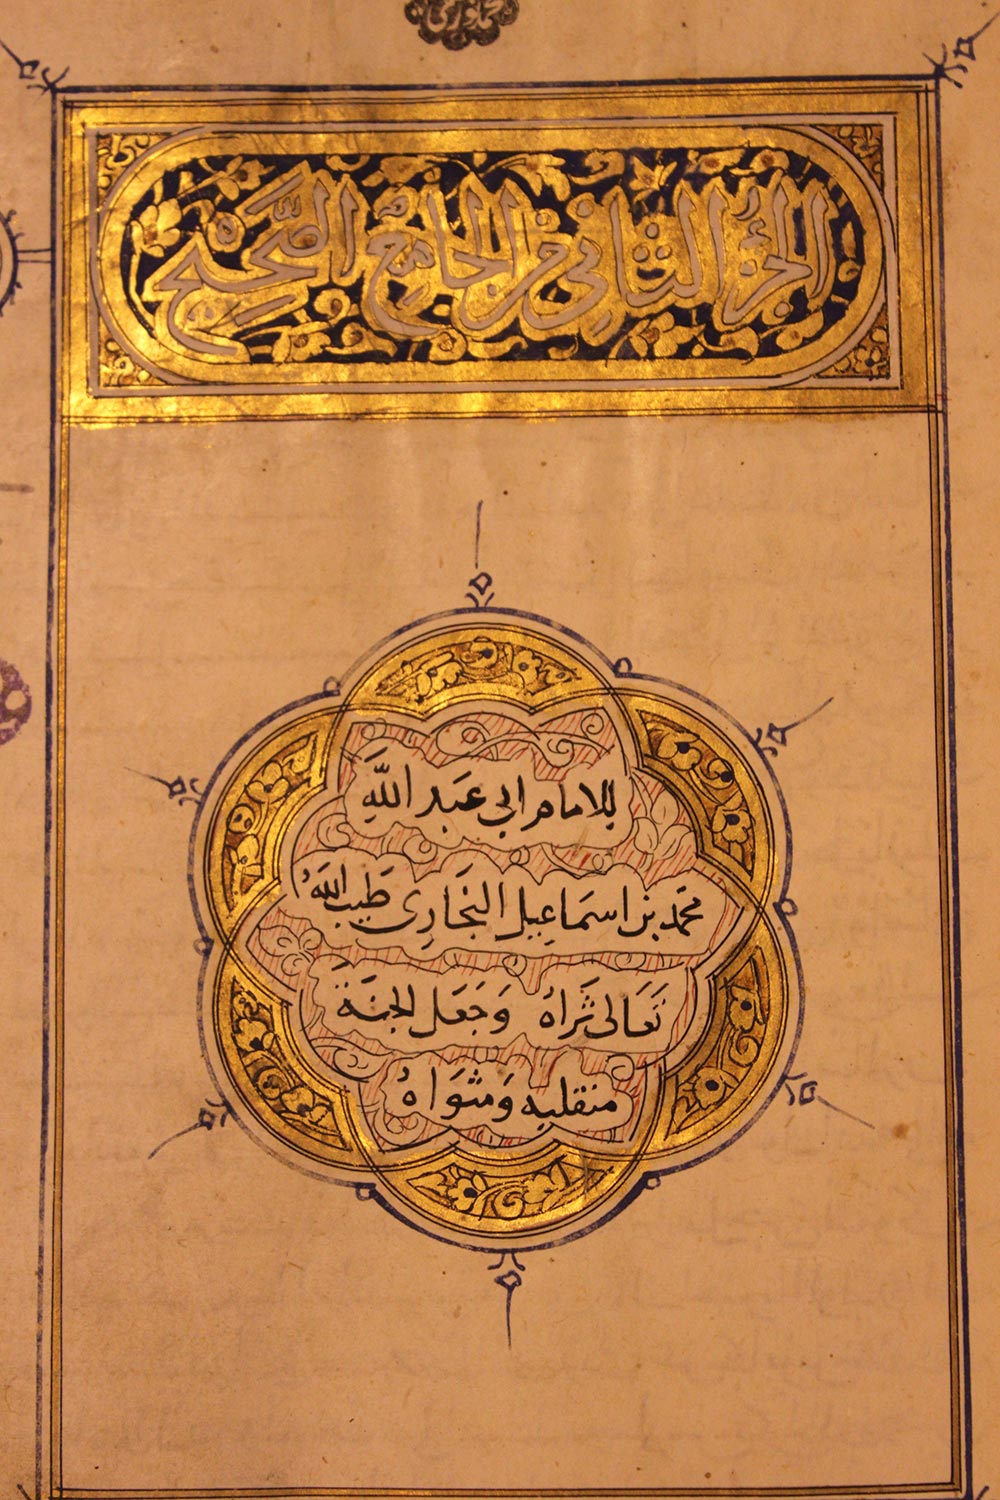 الجزء الثاني من الجامع الصَّحِيح
للامام ابي عَبد اللَّهِ
محمّد بن اسمَاعِيل البخَارِي طَيبَ اللهُ
تَعَالى ثَراهُ وَجَعَل الجنةَ
منقلبه وَمثوَاهُ